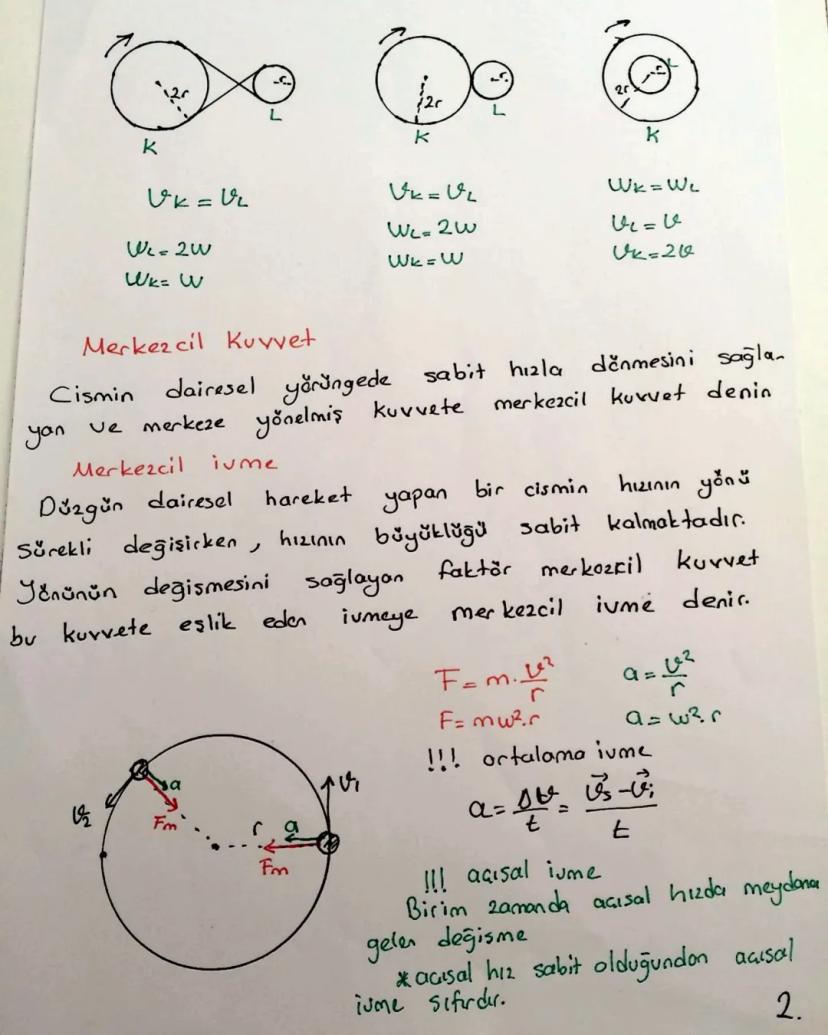 2r r 2r r 2r r
K L K L K L
υK = υL υK = υL WK = WL
WL = 2W WL = 2W υL = υ
WK = W WK = W υK = 2υ
Merkezcil Kuvvet
Cismin dairesel yörüngede sabit hızla dönmesini sağla-
yan ve merkeze yönelmiş kuvvete merkezcil kuvvet denin
Merkezcil ivme
Düzgün dairesel hareket yapan bir cismin hızının yönü
sürekli değişirken, hızının büyüklüğü sabit kalmaktadır.
Yönünün değişmesini sağlayan faktör merkezcil kuvvet
bu kuvvete eşlik eden ivmeye merkezcil ivme denir.
F = m. υ²/r a = υ²/r
F = mw².r a = w².r
!!! ortalama ivme
a = Δυ/t = (υ⃗s - υ⃗i)/t
υ2 a Fm r a Fm υ1
!!! açısal ivme
Birim zamanda açısal hızda meydana
gelen değişme
*açısal hız sabit olduğundan açısal
ivme sıfırdır.
2.